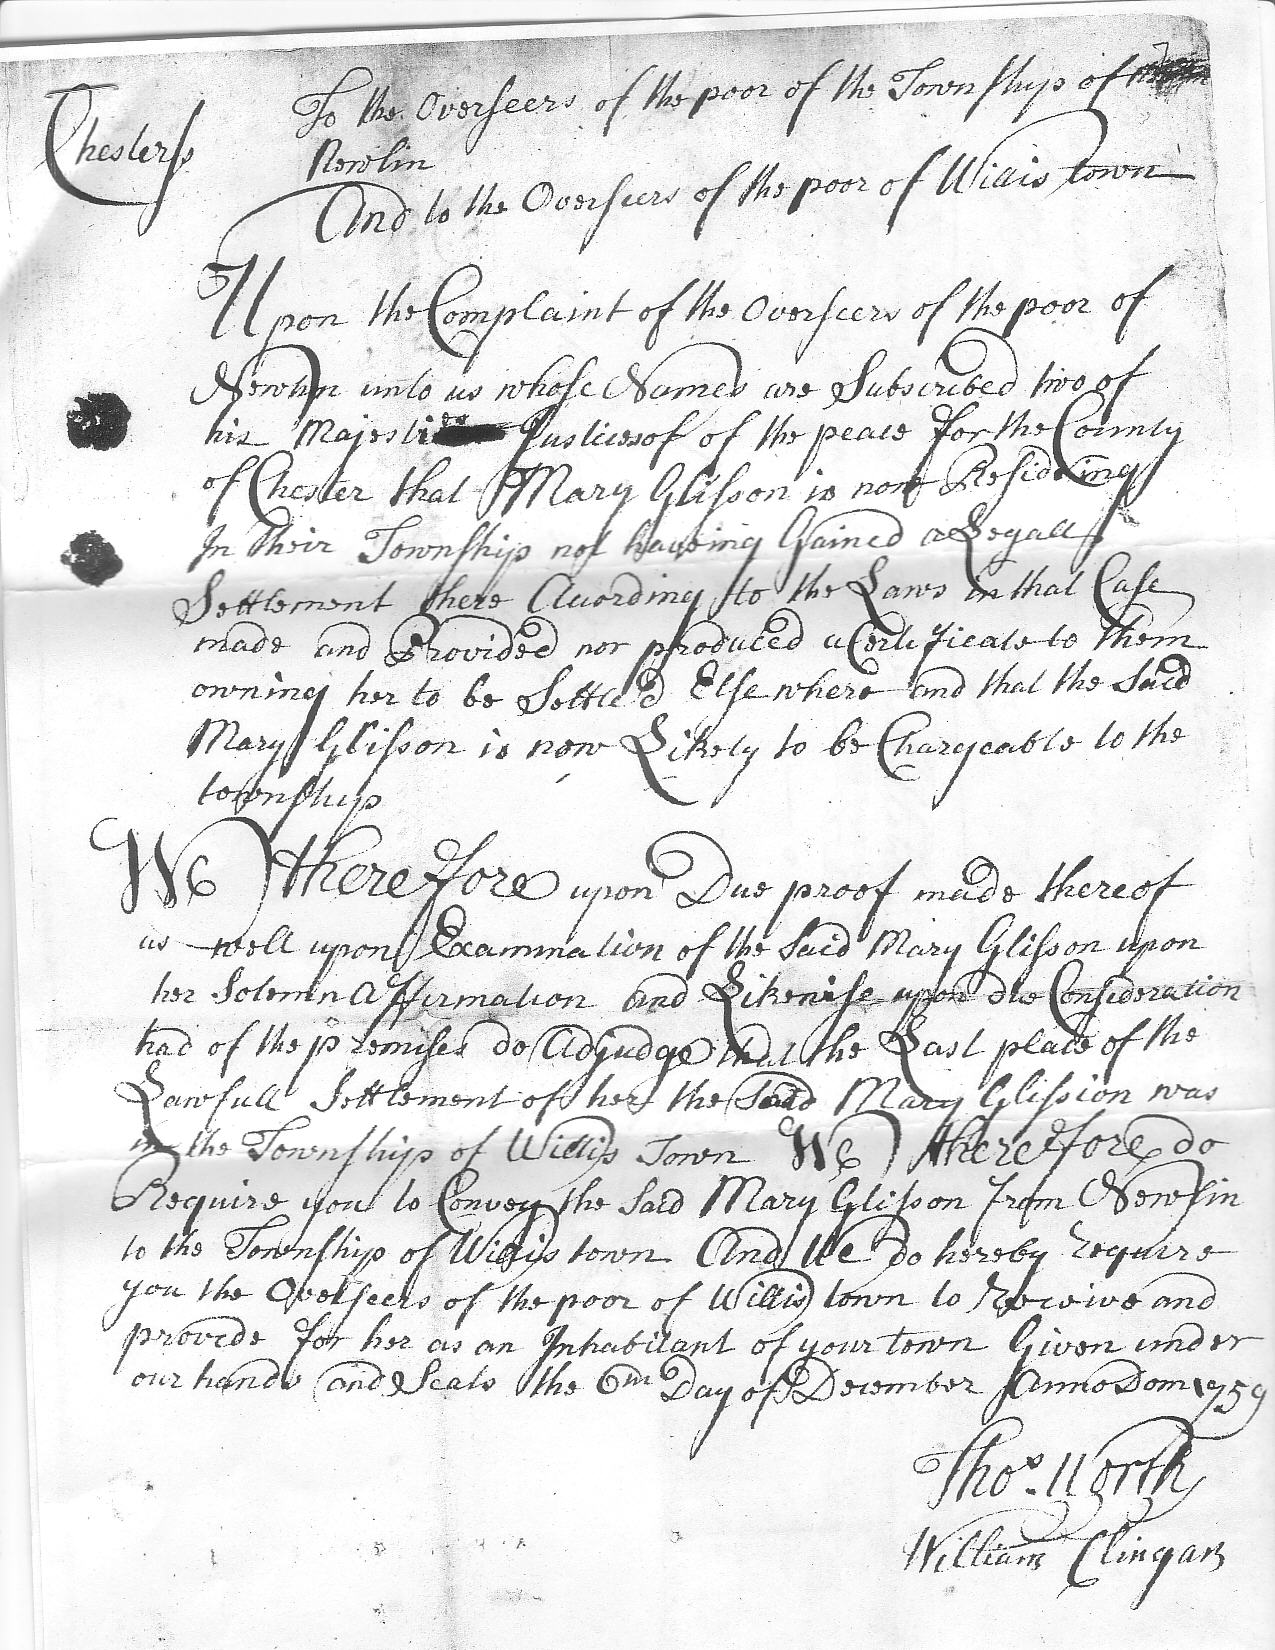 Chester ss
To the Overseers of the poor of the Township of
Newlin
And to the Overseers of the poor of Willis town
Upon the Complaint of the Overseers of the poor of
Newlin unto us whose Names are Subscribed two of
his Majesties Justices of of the peace for the County
of Chester that Mary Glisson is now Resideing
In their Township not haveing Gained a Legall
Settlement there Acording to the Laws in that Case
made and Provided nor produced a Certificate to them
owning her to be Settled Else where and that the Said
Mary Glisson is now Likely to be Chargeable to the
township
We therefore upon Due proof made thereof
as well upon Examination of the Said Mary Glisson upon
her Solemn Affirmation and Likewise upon due Consideration
had of the premises do Adjudge that the Last place of the
Lawfull Settlement of her the Said Mary Glission was
in the Township of Willis Town We therefore do
Require you to Convey the Said Mary Glisson from Newlin
to the Township of Willis town And We do hereby require
you the Overseers of the poor of Willis town to Receive and
provide for her as an Inhabitant of your town Given under
our hands and Seals the 6th Day of December Anno Dom 1759
Thos. Worth
William Clingan